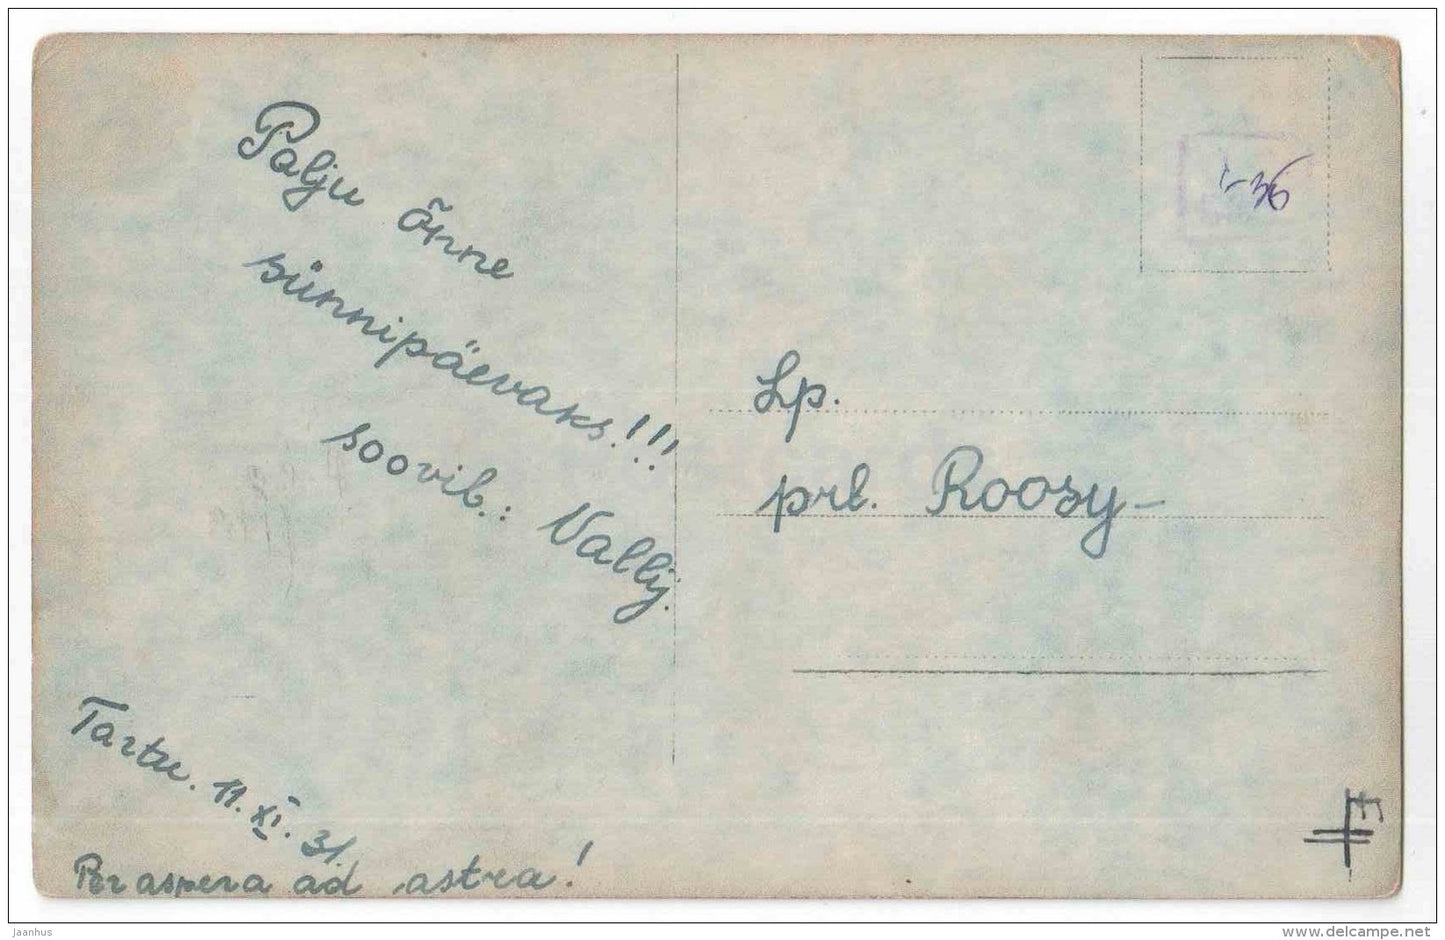 Palju õnne
sünnipäevaks.!!!
soovib.: Vally.
Tartu. 11. XI. 31.
Per aspera ad astra!
Lp.
prl. Roosy-
-36
jaanhus
www.delcampe.net